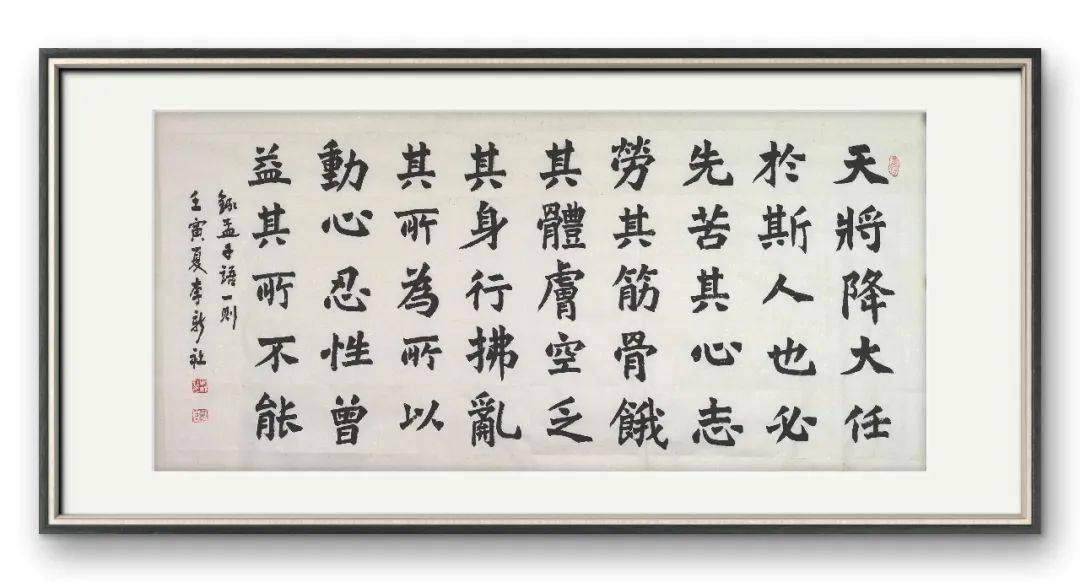 天將降大任
於斯人也必
先苦其心志
勞其筋骨餓
其體膚空乏
其身行拂亂
其所為所以
動心忍性曾
益其所不能
錄孟子語一則
壬寅夏李新社